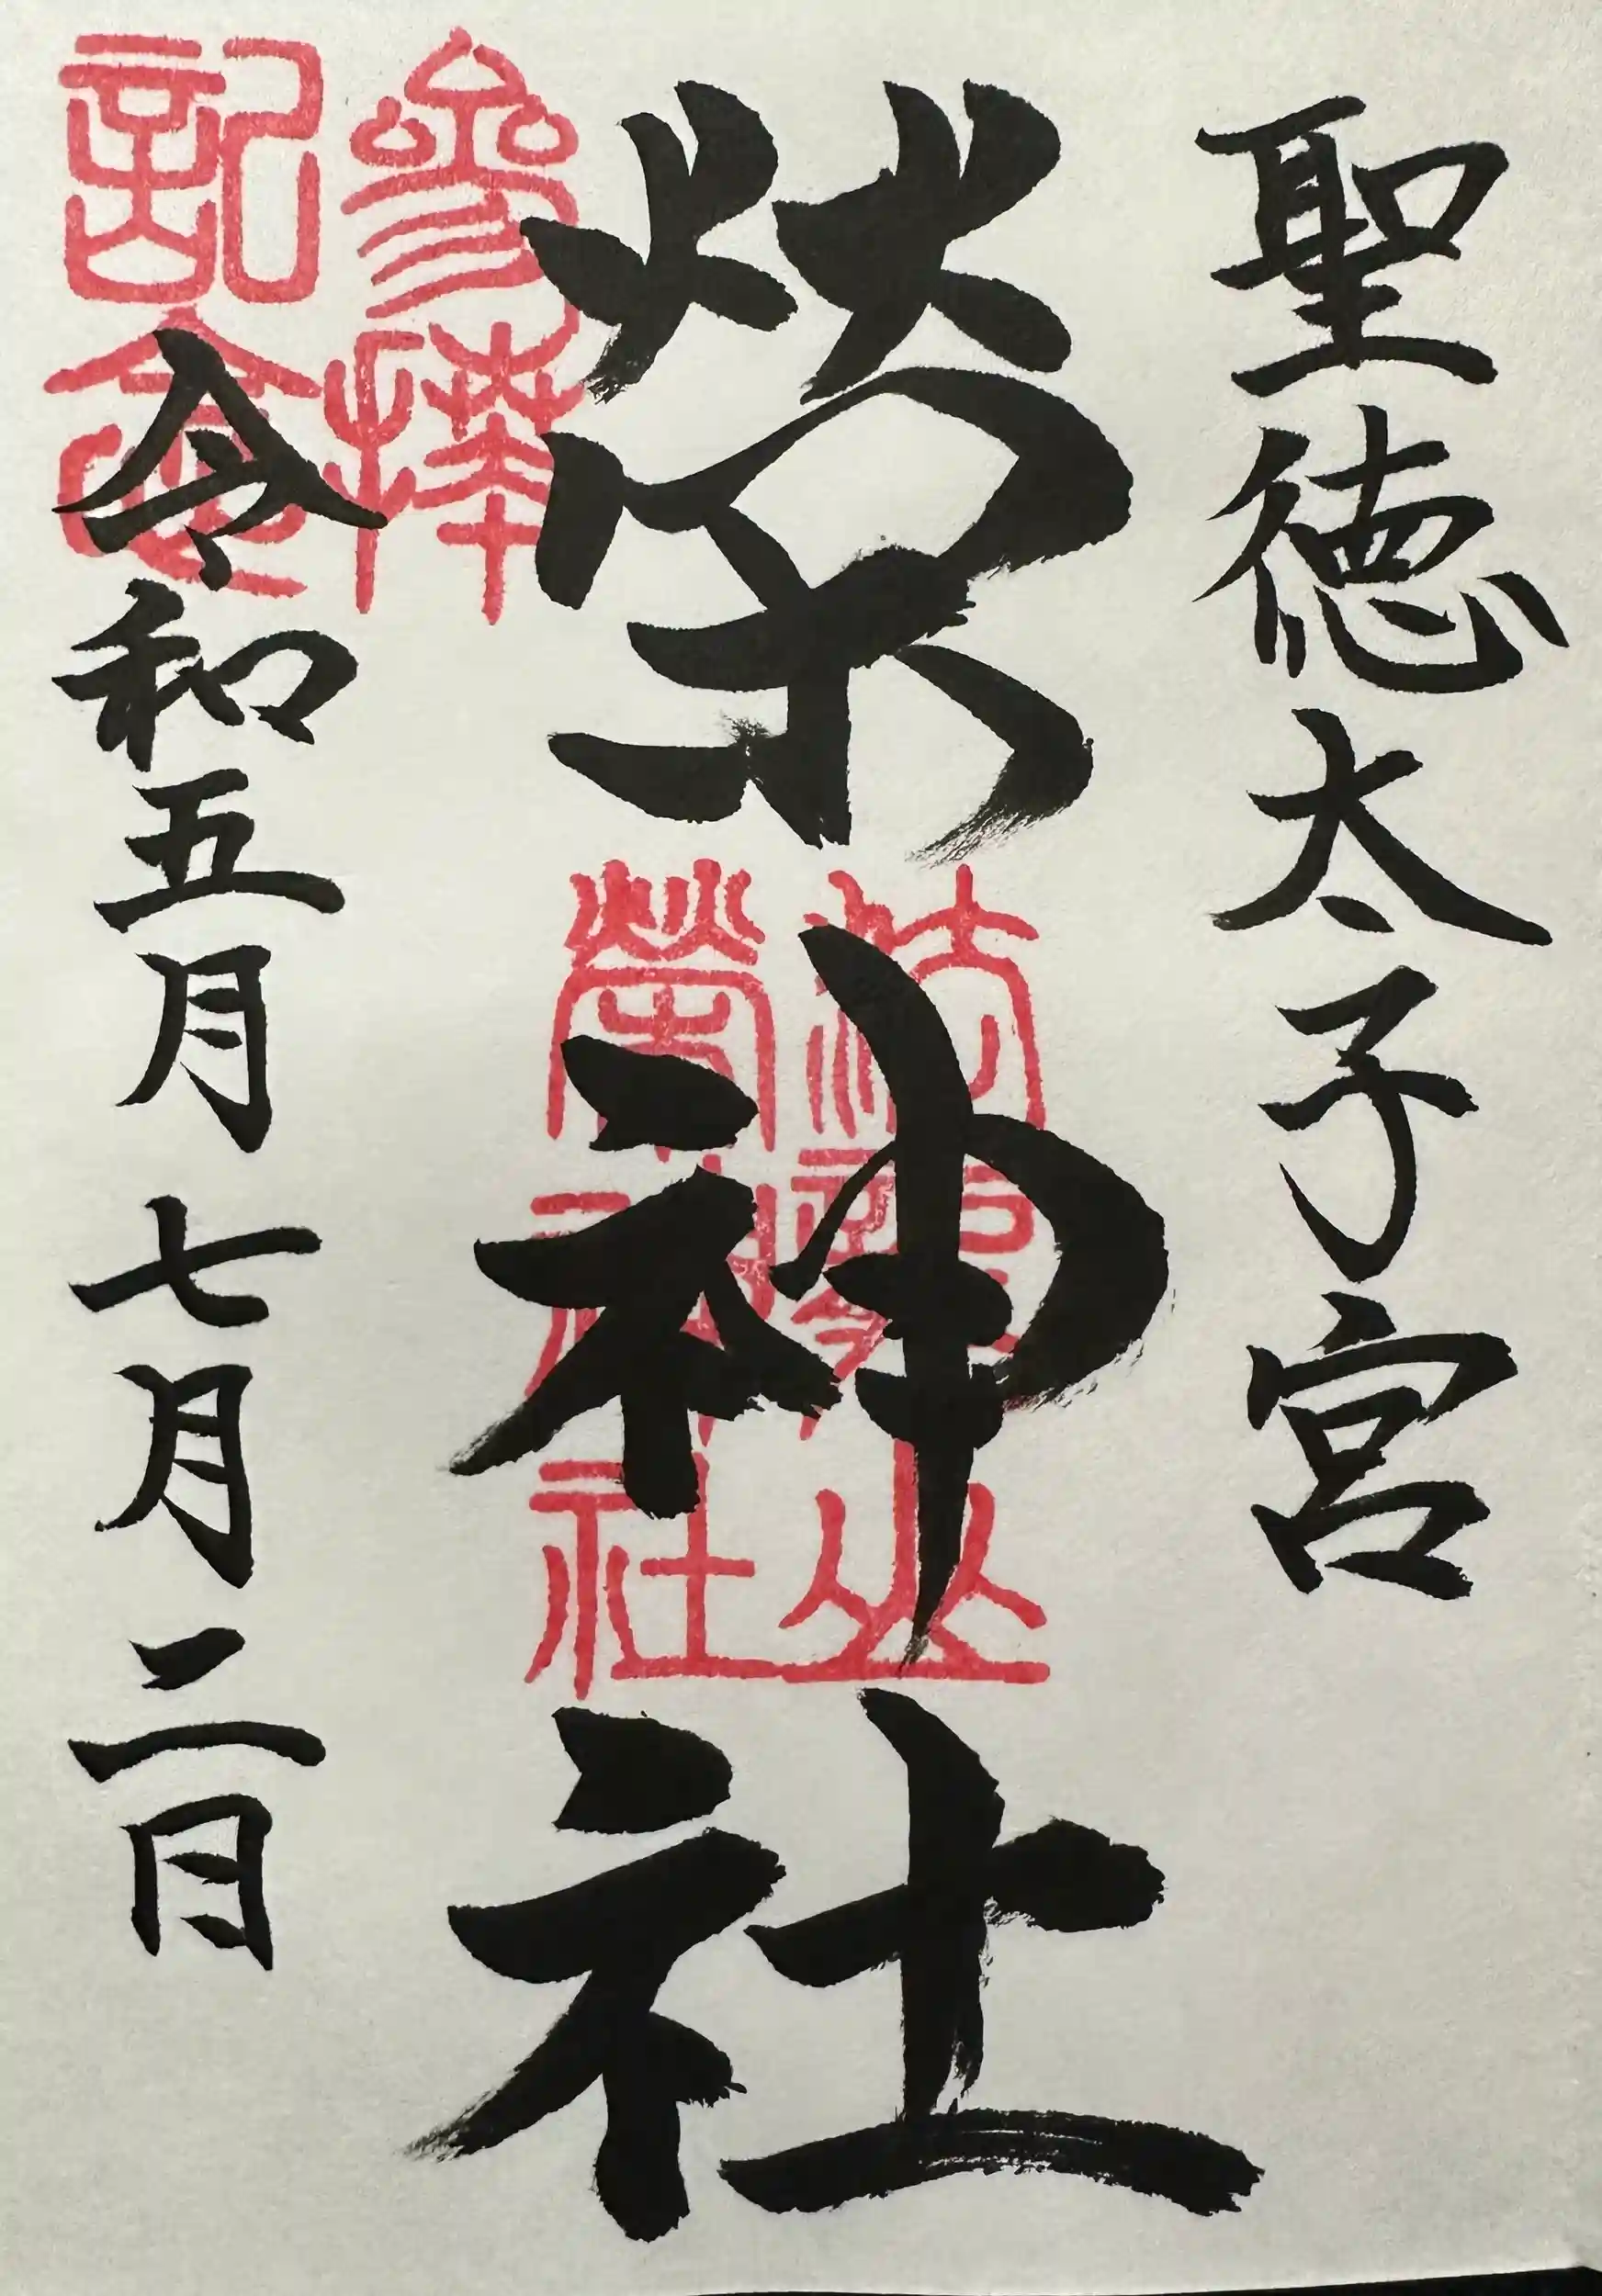 聖徳太子宮
榮神社
榮神社
參拜
記念
令和五月 七月 二日